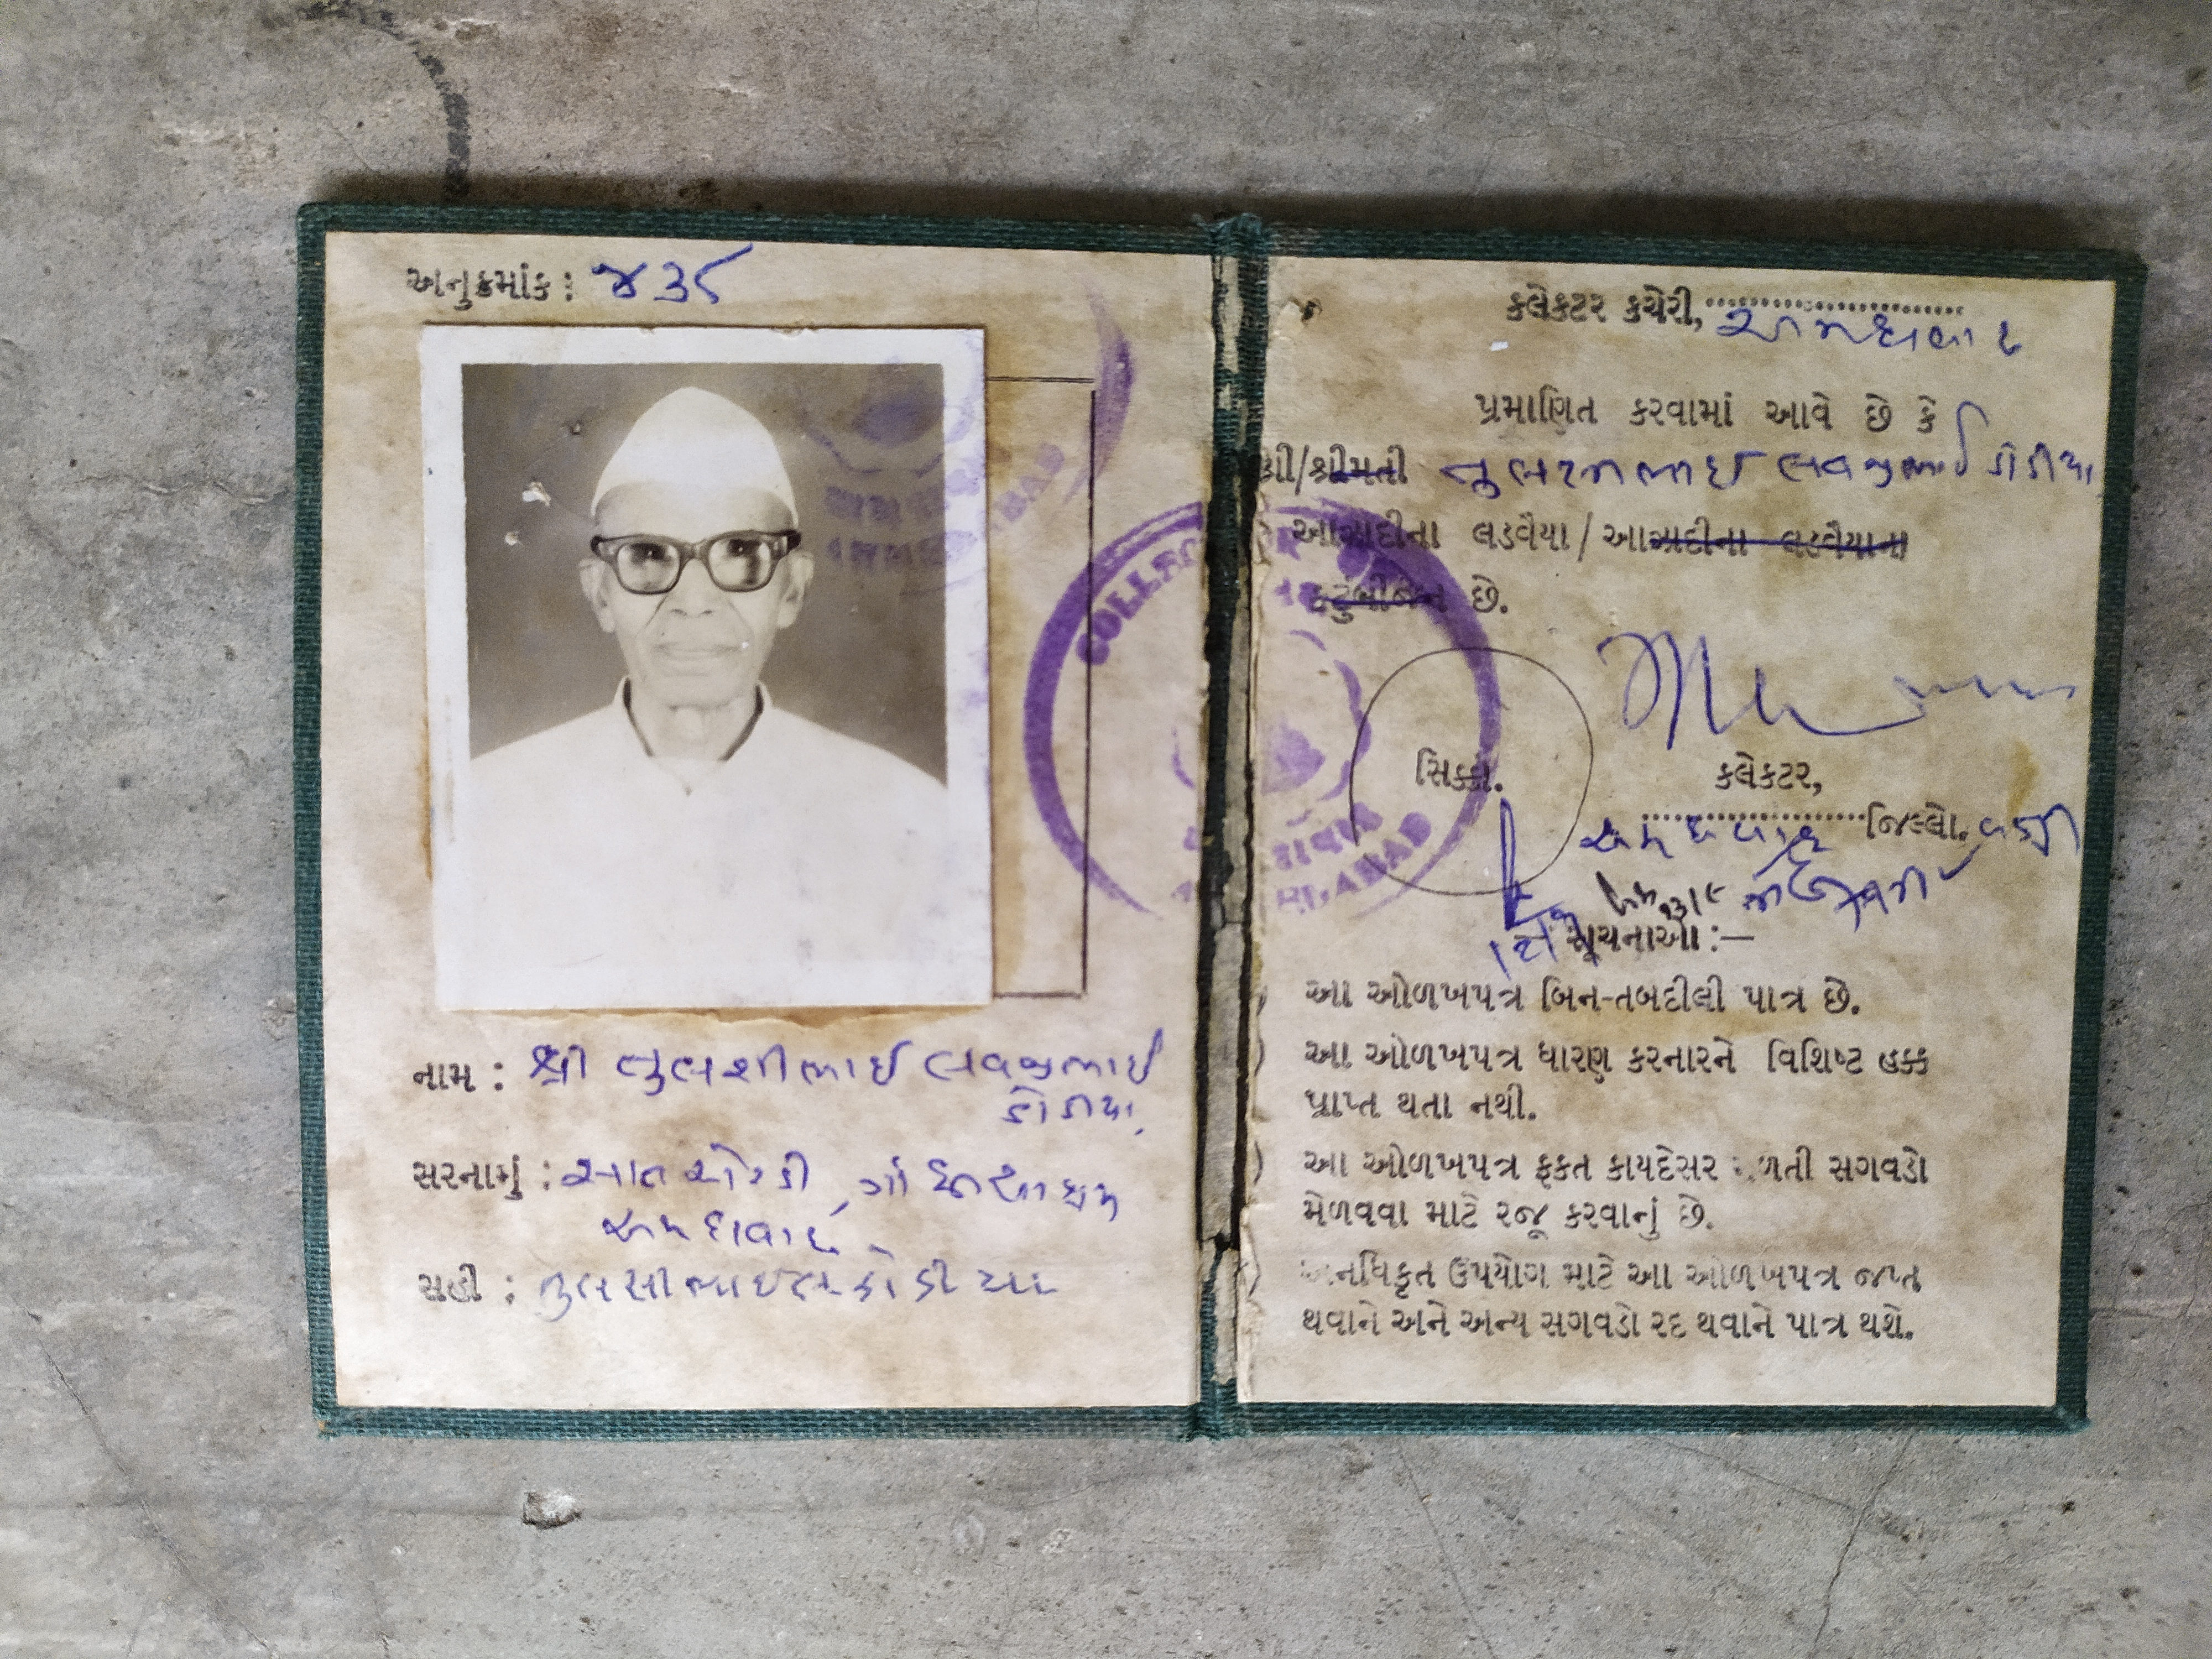 અનુક્રમાંક : ૪૩૮
નામ : શ્રી તુલશીભાઈ લવજીભાઈ
ડોડીયા,
સરનામું : સાત ઓરડી, ગાંધીઆશ્રમ
અમદાવાદ.
સહી : તુલસીભાઈ લ. ડોડીયા
કલેકટર કચેરી,
અમદાવાદ
પ્રમાણિત કરવામાં આવે છે કે
શ્રી/શ્રીમતી તુલસીભાઈ લવજીભાઈ ડોડીયા
આઝાદીના લડવૈયા / આઝાદીના લડવૈયાના
કુટુંબીજન છે.
COLLECTOR
AHMEDABAD
સિક્કો.
કલેકટર,
અમદાવાદ જિલ્લો. વતી
સૂચનાઓ :—
આ ઓળખપત્ર બિન-તબદીલી પાત્ર છે.
આ ઓળખપત્ર ધારણ કરનારને વિશિષ્ટ હક્ક
પ્રાપ્ત થતા નથી.
આ ઓળખપત્ર ફકત કાયદેસર મળતી સગવડો
મેળવવા માટે રજૂ કરવાનું છે.
અનધિકૃત ઉપયોગ માટે આ ઓળખપત્ર જપ્ત
થવાને અને અન્ય સગવડો રદ થવાને પાત્ર થશે.